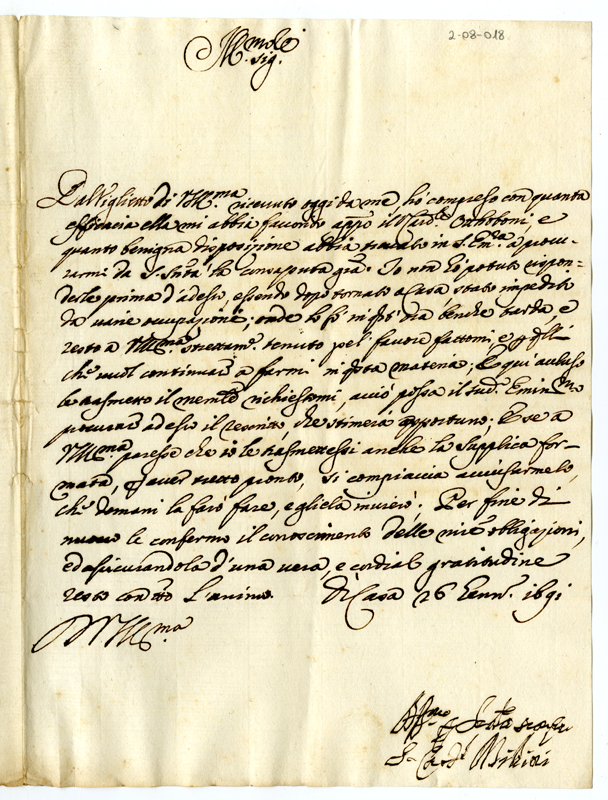 2-08-018
Ill.mo
Sig.
Dal viglietto di V.S. Ill.ma ricevuto oggi da me, hò compreso con quanta
efficacia ella mi abbia favorito app.o il Card.le Ottoboni, e
quanto benigna disposizione abbia trovato in S. Em.za a procu-
rarmi da S. S.ntà la consaputa gra. Io non hò potuto rispon-
derle prima d'adesso, essendo dopo tornato a casa stato impedito
da varie occupazioni; onde lo fò in q.sta ora benche tarda, e
resto a V.S. Ill.ma strettam.te tenuto pel favore fattomi, e p q.lli
che vuol continuare a farmi in q.sta materia; E qui accluso
le trasmetto il mem.le richiestomi, acciò possa il sud.o Emin.mo
procurar adesso il rescritto, che stimerà opportuno. E se a
V.S. Ill.ma paresse che io le trasmettessi anche la supplica for-
mata, p aver tutto pronto, si compiaccia avvisarmelo,
che domani la farò fare, e gliela invierò. Per fine di
nuovo le confermo il conoscimento delle mie obligazioni,
ed assicurandola d'una vera, e cordial gratitudine
resto con tto l'animo. Di Casa 26 Genn.o 1691
D V.S. Ill.ma
Aff.mo p Ser.la sempre